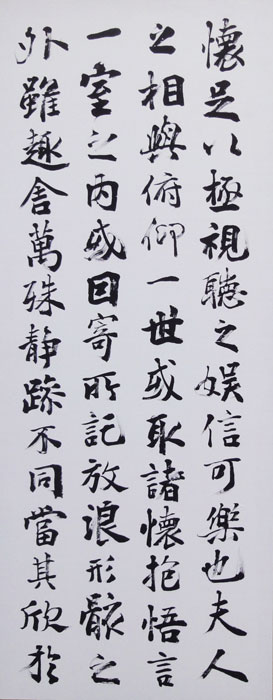 懐足以極視聴之娯信可樂也夫人
之相與俯仰一世或取諸懐抱悟言
一室之内或因寄所託放浪形骸之
外雖趣舎萬殊静躁不同當其欣於